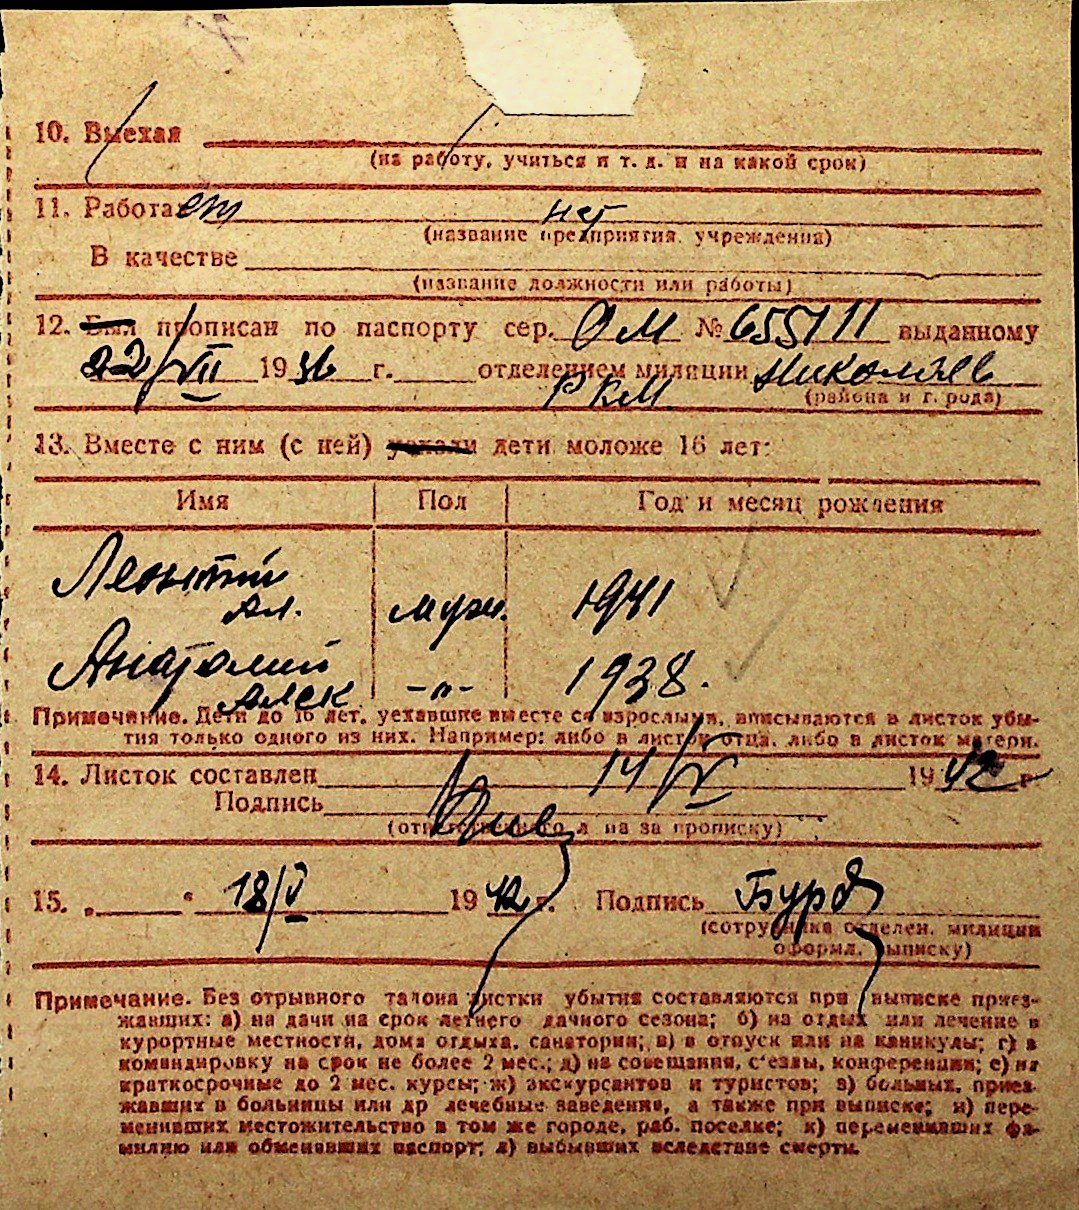 10. Выехал
(на работу, учиться и т. д. и на какой срок)
11. Работает нет
(название предприятия, учреждения)
В качестве
(название должности или работы)
12. Был прописан по паспорту сер. ОМ № 655111 выданному
22/VII 1936 г. отделением милиции Николаев
РКМ. (района и города)
13. Вместе с ним (с ней) уехали дети моложе 16 лет:
Имя Пол Год и месяц рождения
Леонтий
Ал. муж. 1941
Анатолий
Алек -"- 1938.
Примечание. Дети до 16 лет, уехавшие вместе со взрослыми, вписываются в листок убы-
тия только одного из них. Например: либо в листок отца, либо в листок матери.
14. Листок составлен 14/V 1942 г.
Подпись
(ответственного л на за прописку)
15. „ “ 18/V 1942 г. Подпись Бурд
(сотрудника отделен. милиции
оформл. выписку)
Примечание. Без отрывного талона листки убытия составляются при выписке приез-
жавших: а) на дачи на срок летнего дачного сезона; б) на отдых или лечение в
курортные местности, дома отдыха, санатории; в) в отпуск или на каникулы; г) в
командировку на срок не более 2 мес.; д) на совещания, съезды, конференции; е) на
краткосрочные до 2 мес. курсы; ж) экскурсантов и туристов; з) больных, приез-
жавших в больницы или др лечебные заведения, а также при выписке; и) пере-
менивших местожительство в том же городе, раб. поселке; к) переменивших фа-
милию или обменявших паспорт; л) выбывших вследствие смерти.